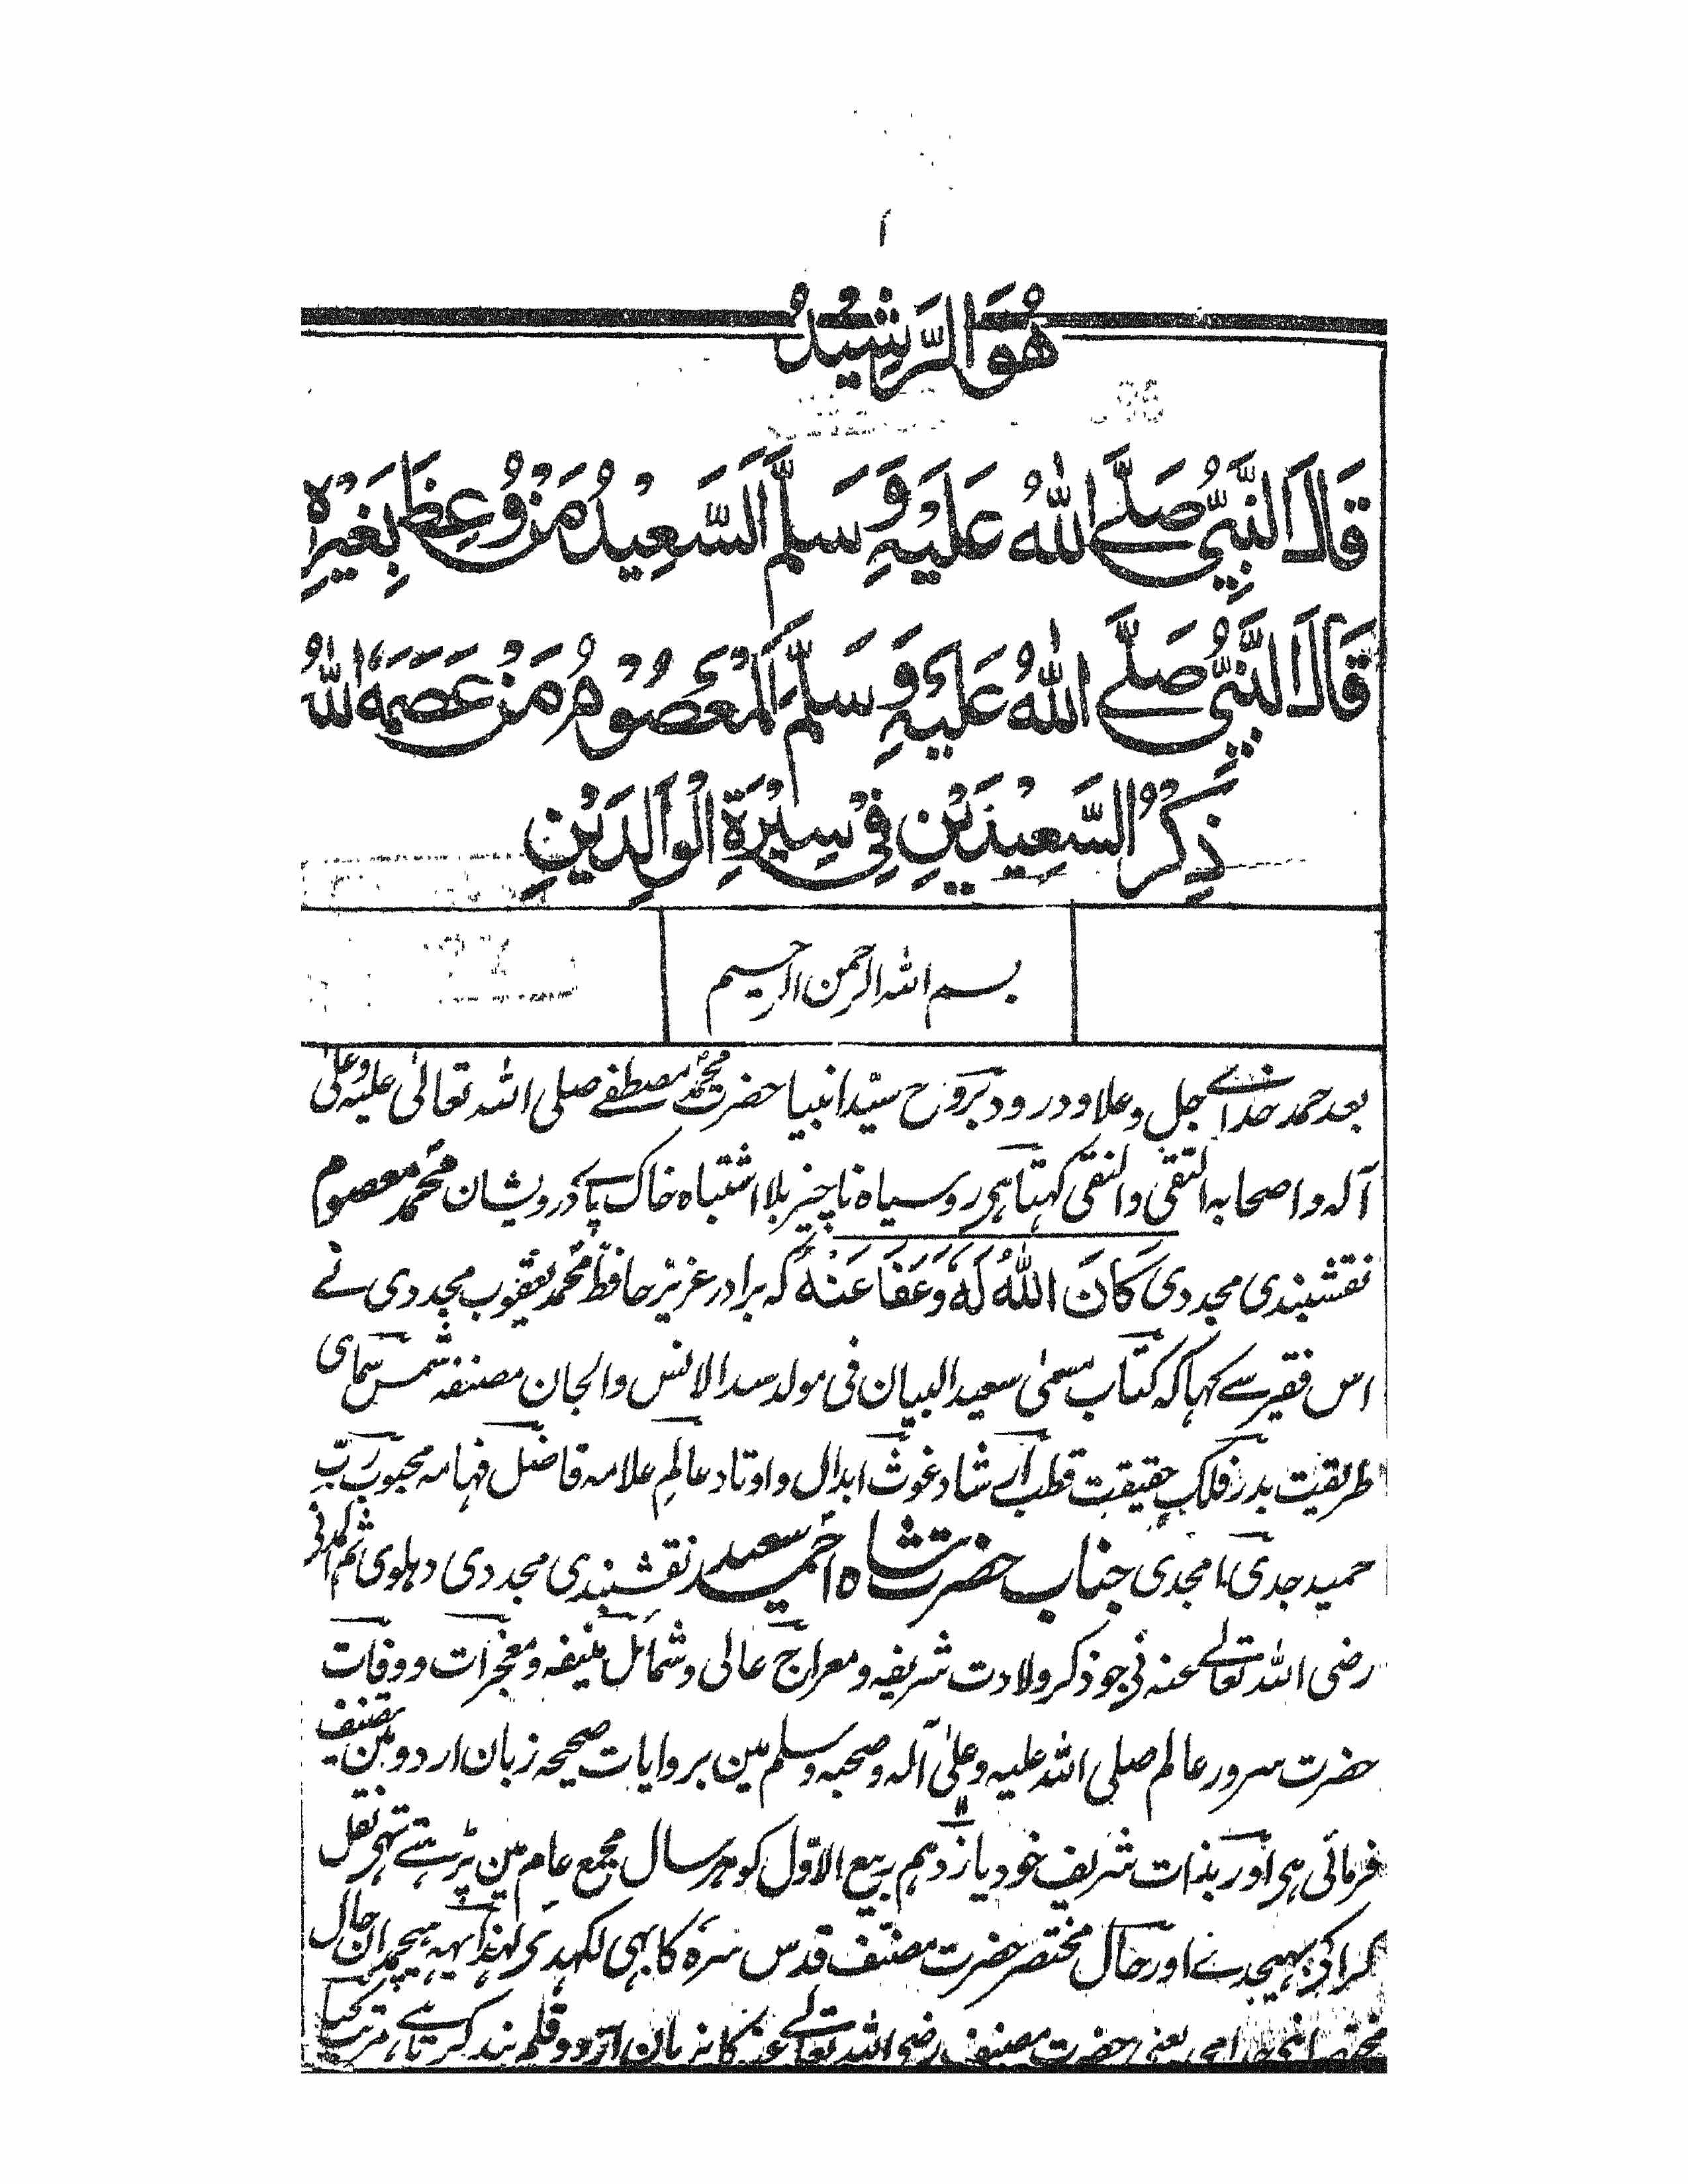 ۱
هُوَ الرَّشِيْدُ
قَالَ النَّبِيُّ صَلَّے اللهُ عَلَيْهِ وَسَلَّمَ اَلسَّعِيْدُ مَنْ وُعِظَ بِغَيْرِهٖ
قَالَ النَّبِيُّ صَلَّے اللهُ عَلَيْهِ وَسَلَّمَ اَلْمَعْصُوْمُ مَنْ عَصَمَهُ اللهُ
ذِكْرُ السَّعِيْدَيْنِ فِيْ سِيْرَةِ الْوَالِدَيْنِ
بسم الله الرحمن الرحيم
بعد حمد خداے جل و علا و درود بروح سیّد انبیا حضرت محمّد مصطفے صلی اللہ تعالیٰ علیہ وعلیٰ
آلہ واصحابہ التقی والنقی کہتا ہی روسیاہ ناچیز بلا اشتباہ خاک پاے درویشان محمّد معصوم
نقشبندی مجددی كَانَ اللهُ لَهٗ وَعَفَا عَنْهُ کہ برادر عزیز حافظ محمّد یعقوب مجددی نے
اس فقیر سے کہا کہ کتاب مسمیٰ سعید البیان فی مولد سید الانس والجان مصنفہ شمس سمای
طریقت بدر فلک حقیقت قطب ارشاد غوث ابدال و اوتاد عالم علامہ فاضل فہامہ محبوب ربّ
حمید جدی امجدی جناب حضرت شاہ احمد سعید نقشبندی مجددی دہلوی ثم المدنی
رضی اللہ تعالے عنہ نی جو ذکر ولادت شریفہ و معراج عالی و شمائل منیفہ و معجزات و وفات
حضرت سرور عالم صلی اللہ علیہ وعلیٰ آلہ وصحبہ وسلم مین بروایات صحیحہ زبان اردو مین تصنیف
فرمائی ہی اور بذات شریف خود یازدہم ربیع الاوّل کو ہر سال مجمع عام مین پڑہتے تہی نقل
کرا کی بہیجدے اور حال مختصر حضرت مصنّف قدس سرہ کا بہی لکہدی لہذا یہہ ہیچمدان حال
مختصر جد امجد یعنی حضرت مصنف رضی اللہ تعالے عنہ کا زبان اردو قلمبند کرتا ہے مرتب کیا